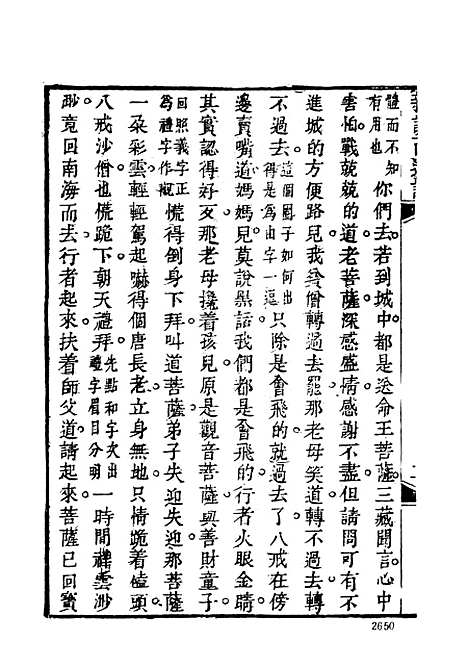 體而不知有用也你們去若到城中都是送命王菩薩三藏聞言心中
害怕戰兢兢的道老菩薩深感盛情感謝不盡但請問可有不
進城的方便路兒我貧僧轉過去罷那老母笑道轉不過去轉
不過去這個圈子如何出得是爲由字一逗只除是會飛的就過去了八戒在傍
邊賣嘴道媽媽兒莫說黑話我們都是會飛的行者火眼金睛
其實認得好歹那老母攙着孩兒原是觀音菩薩與善財童子
回照義字正爲禮字作襯慌得倒身下拜叫道菩薩弟子失迎失迎那菩薩
一朵彩雲輕輕駕起嚇得個唐長老立身無地只情跪着磕頭
八戒沙僧也慌跪下朝天禮拜先點和字次出禮字眉目分明一時間祥雲渺
渺竟回南海而去行者起來扶着師父道請起來菩薩已回寶
2650